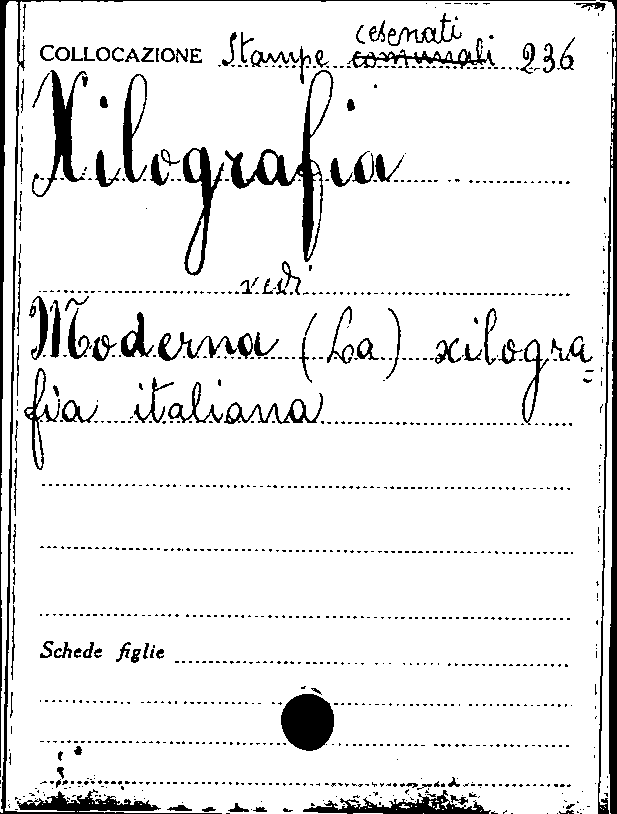 cesenati
COLLOCAZIONE Stampe comunali 236
Xilografia
vedi
Moderna (La) xilogra=
fia italiana
Schede figlie